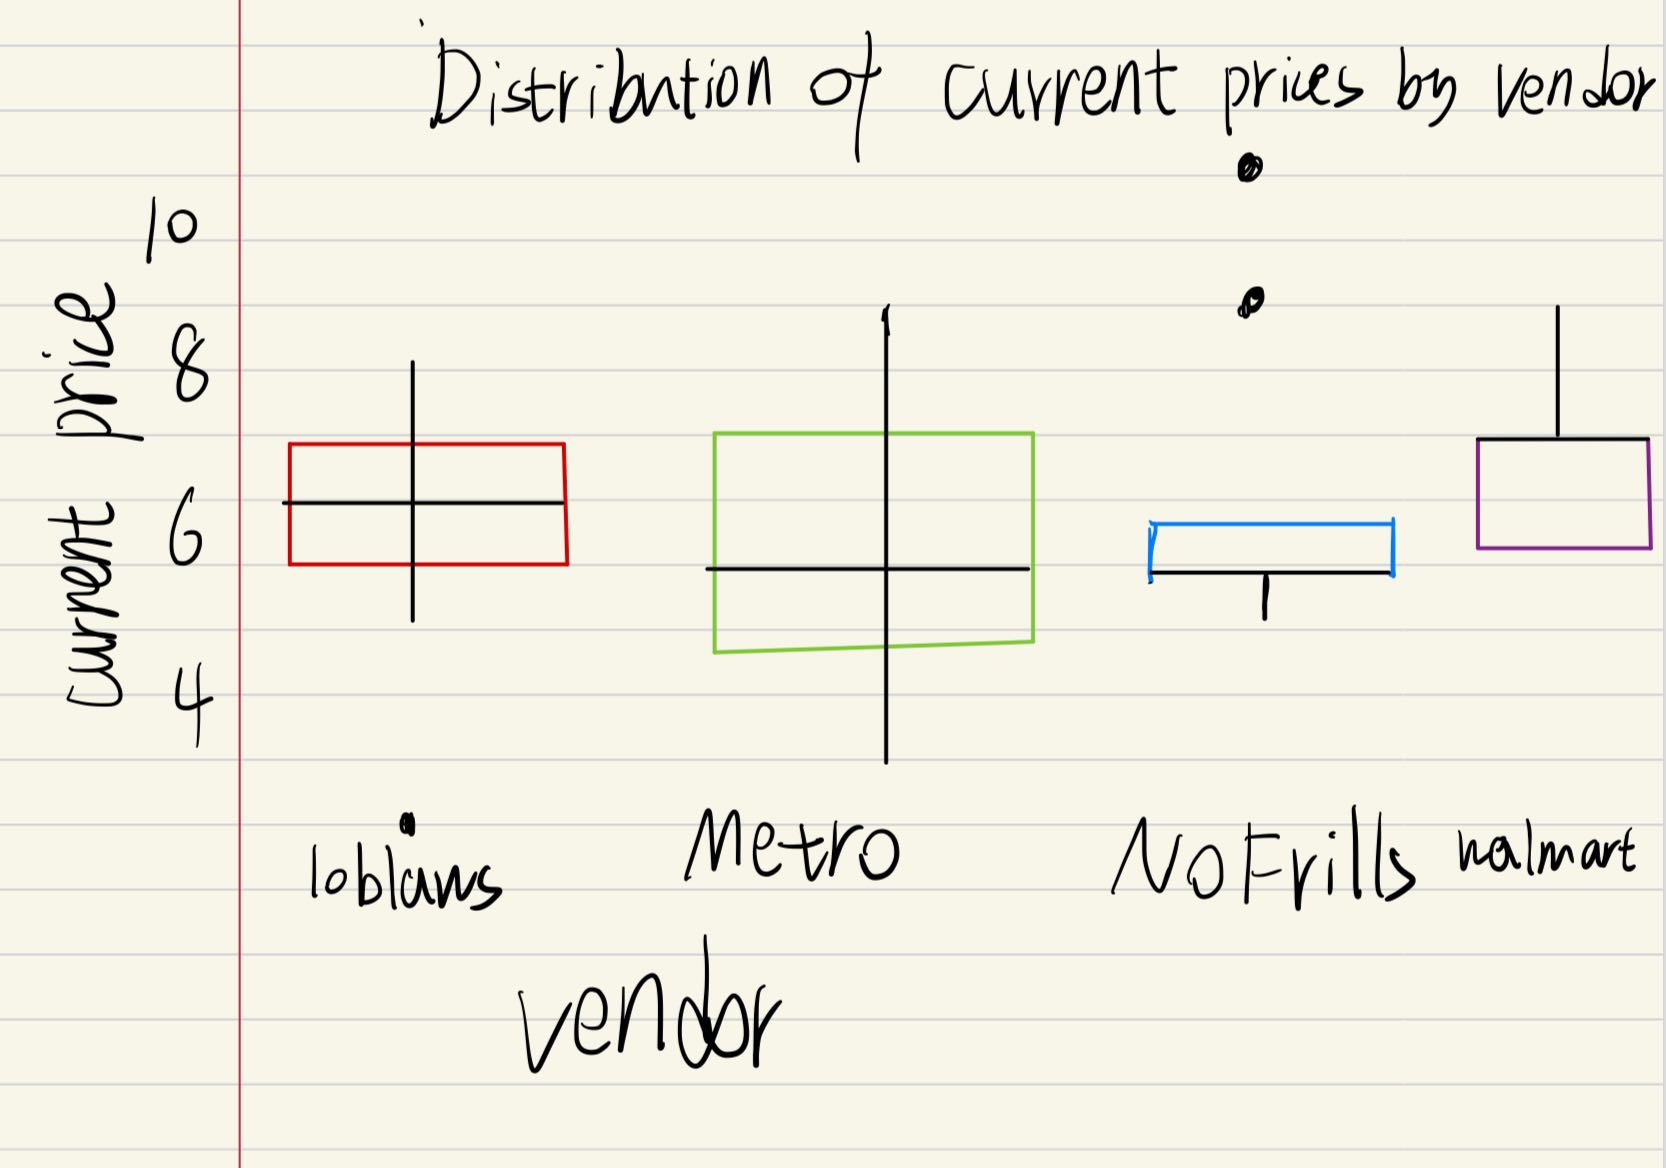 Distribution of current prices by vendor
10
8
6
4
current price
loblaws
Metro
NoFrills
walmart
vendor